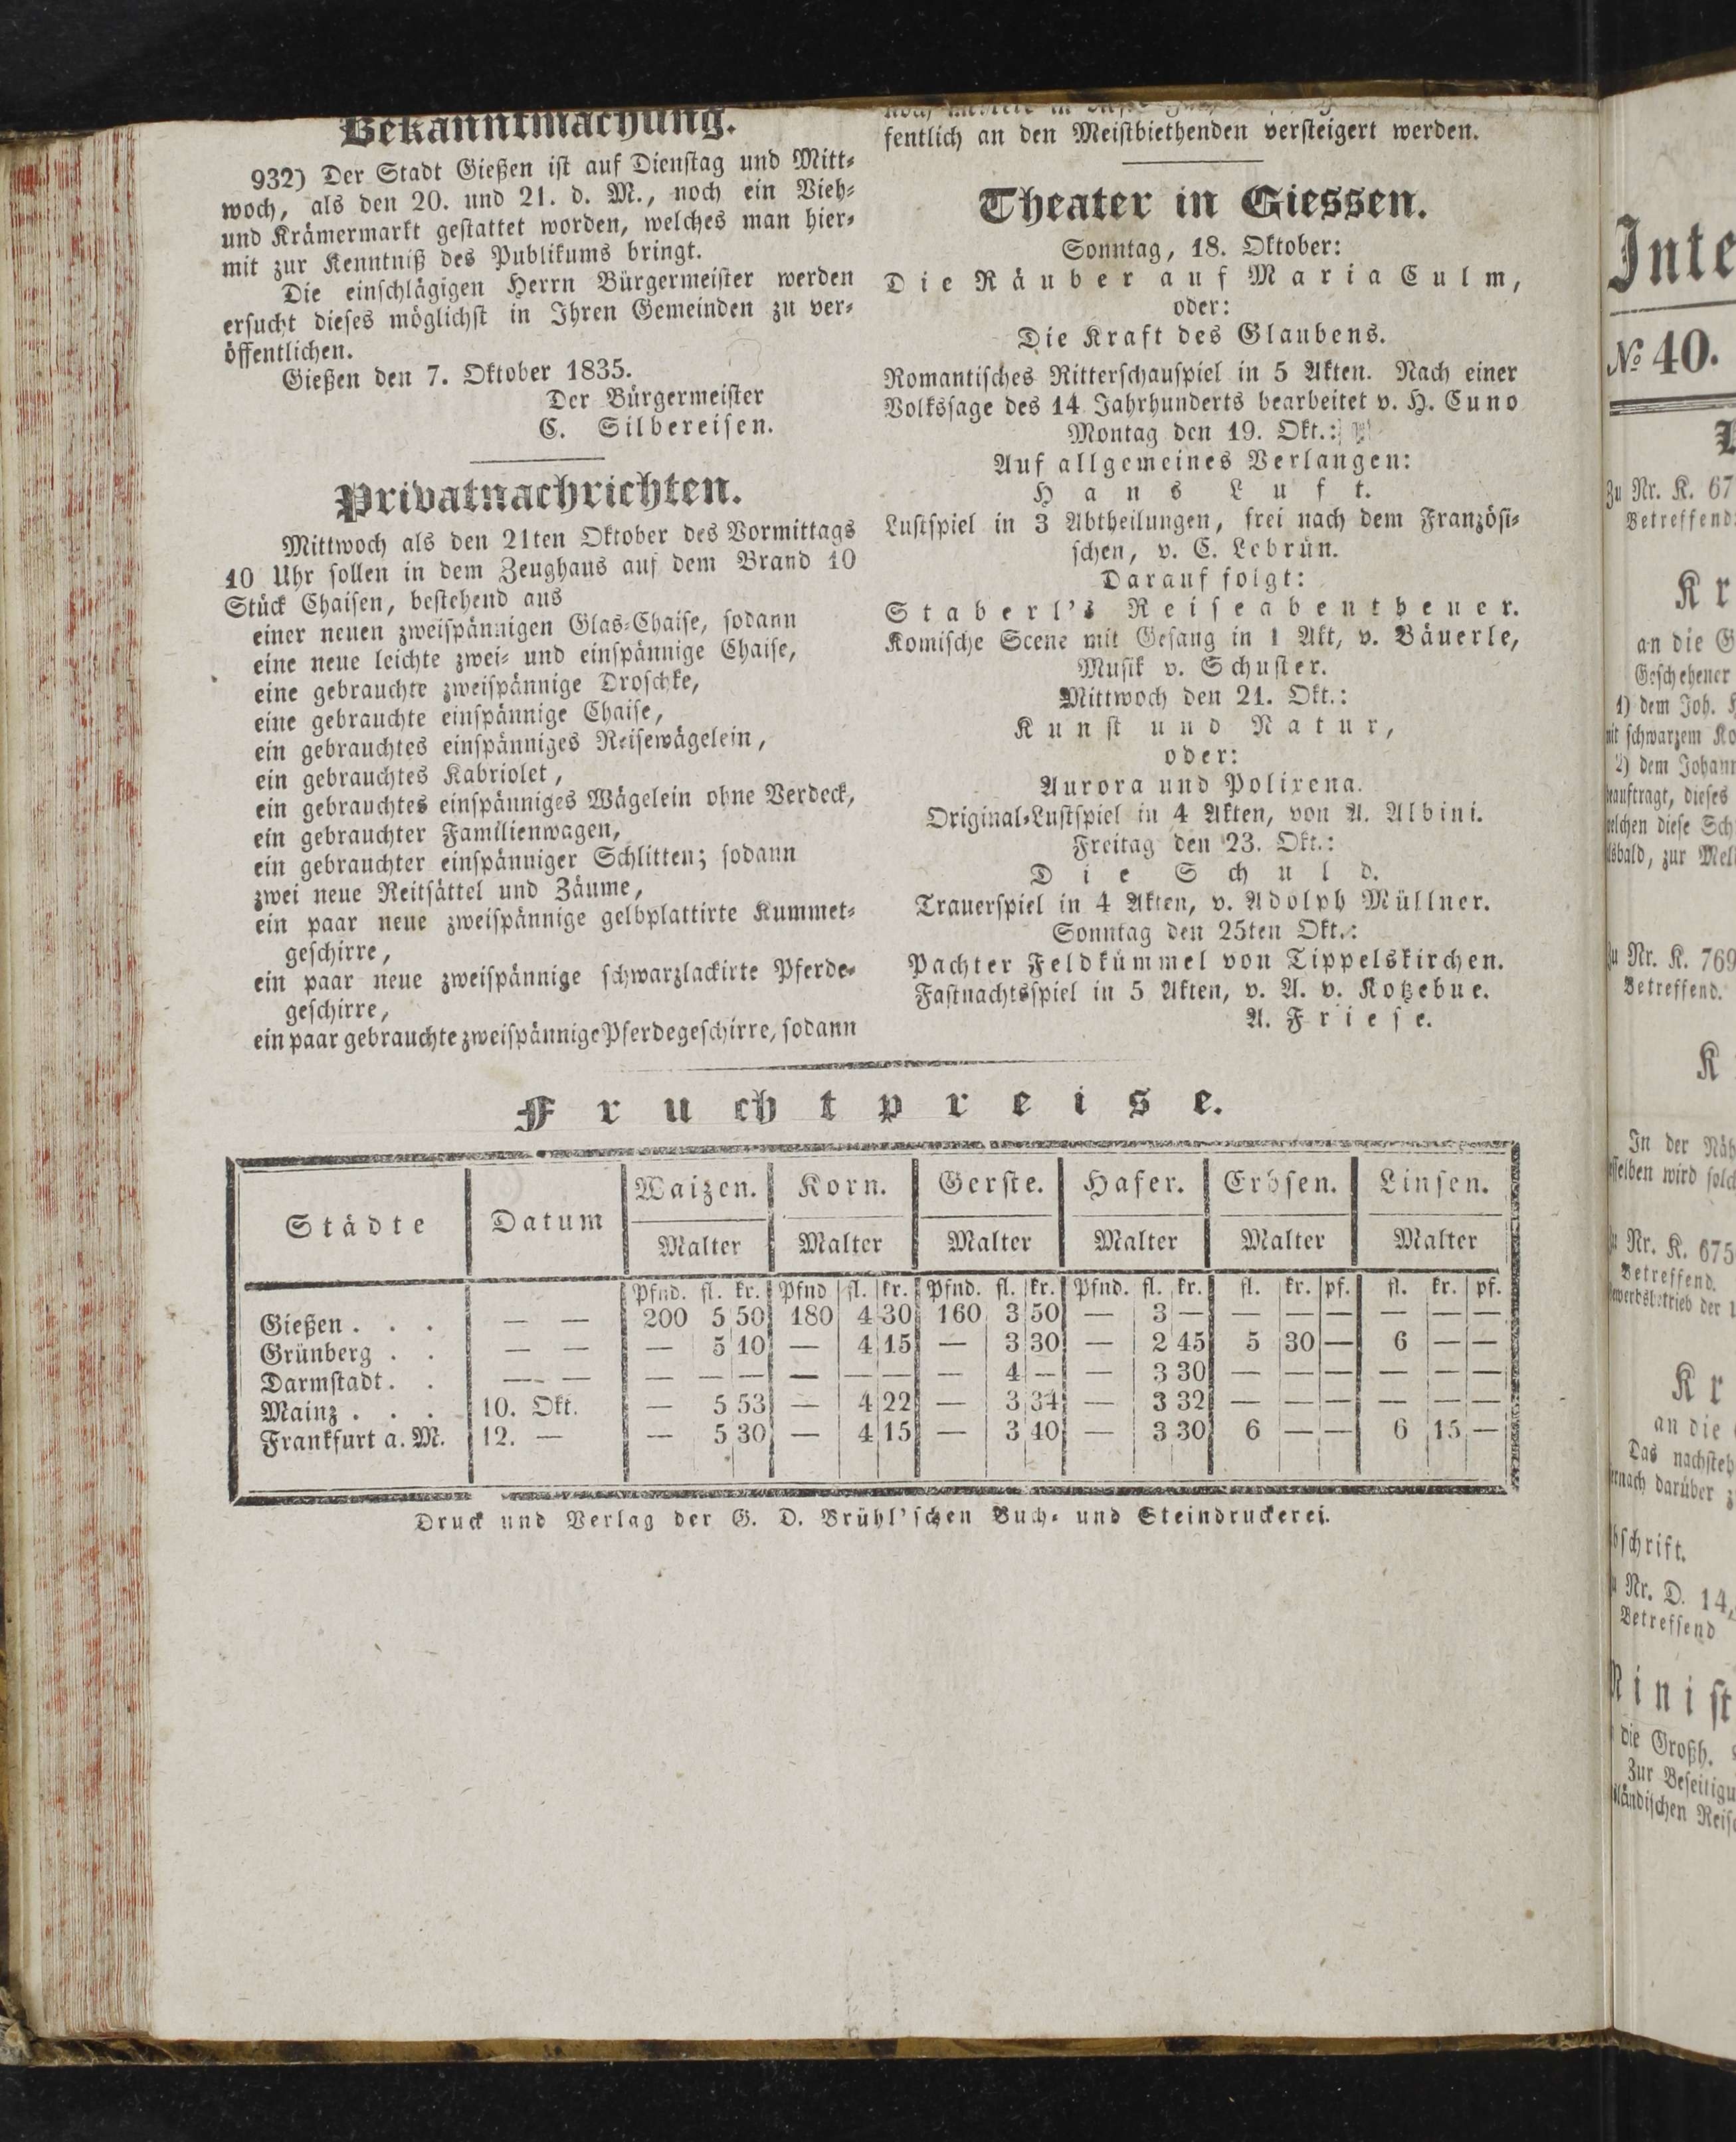 Bekanntmachung.
932) Der Stadt Gießen ist auf Dienstag und Mitt-
woch, als den 20. und 21. d. M., noch ein Vieh-
und Krämermarkt gestattet worden, welches man hier-
mit zur Kenntniß des Publikums bringt.
Die einschlägigen Herrn Bürgermeister werden
ersucht dieses möglichst in Ihren Gemeinden zu ver-
öffentlichen.
Gießen den 7. Oktober 1835.
Der Bürgermeister
C. Silbereisen.
Privatnachrichten.
Mittwoch als den 21ten Oktober des Vormittags
10 Uhr sollen in dem Zeughaus auf dem Brand 10
Stück Chaisen, bestehend aus
einer neuen zweispännigen Glas-Chaise, sodann
eine neue leichte zwei- und einspännige Chaise,
eine gebrauchte zweispännige Droschke,
eine gebrauchte einspännige Chaise,
ein gebrauchtes einspänniges Reisewägelein,
ein gebrauchtes Kabriolet,
ein gebrauchtes einspänniges Wägelein ohne Verdeck,
ein gebrauchter Familienwagen,
ein gebrauchter einspänniger Schlitten; sodann
zwei neue Reitsättel und Zäume,
ein paar neue zweispännige gelbplattirte Kummet-
geschirre,
ein paar neue zweispännige schwarzlackirte Pferde-
geschirre,
ein paar gebrauchte zweispännige Pferdegeschirre, sodann
fentlich an den Meistbiethenden versteigert werden.
Theater in Giessen.
Sonntag, 18. Oktober:
Die Räuber auf Maria Culm,
oder:
Die Kraft des Glaubens.
Romantisches Ritterschauspiel in 5 Akten. Nach einer
Volkssage des 14 Jahrhunderts bearbeitet v. H. Cuno
Montag den 19. Okt.:
Auf allgemeines Verlangen:
Hans Luft.
Lustspiel in 3 Abtheilungen, frei nach dem Französi-
schen, v. C. Lebrün.
Darauf folgt:
Staberl's Reiseabentheuer.
Komische Scene mit Gesang in 1 Akt, v. Bäuerle,
Musik v. Schuster.
Mittwoch den 21. Okt.:
Kunst und Natur,
oder:
Aurora und Polixena.
Original-Lustspiel in 4 Akten, von A. Albini.
Freitag den 23. Okt.:
Die Schuld.
Trauerspiel in 4 Akten, v. Adolph Müllner.
Sonntag den 25ten Okt.:
Pachter Feldkümmel von Tippelskirchen.
Fastnachtsspiel in 5 Akten, v. A. v. Kotzebue.
A. Friese.
Fruchtpreise.
Städte Datum Waizen. Korn. Gerste. Hafer. Erbsen. Linsen.
Malter Malter Malter Malter Malter Malter
Pfnd. fl. kr. Pfnd fl. kr. Pfnd. fl. kr. Pfnd. fl. kr. fl. kr. pf. fl. kr. pf.
Gießen . . . — — 200 5 50 180 4 30 160 3 50 — 3 — — — — — — —
Grünberg . . — — — 5 10 — 4 15 — 3 30 — 2 45 5 30 — 6 — —
Darmstadt. . — — — — — — — — — 4 — — 3 30 — — — — — —
Mainz . . . 10. Okt. — 5 53 — 4 22 — 3 34 — 3 32 — — — — — —
Frankfurt a. M. 12. — — 5 30 — 4 15 — 3 40 — 3 30 6 — — 6 15 —
Druck und Verlag der G. D. Brühl'schen Buch- und Steindruckerei.
Inte
№ 40.
Zu Nr. K. 67
Betreffend:
Kr
an die G
Geschehener
1) dem Joh.
mit schwarzem Ko
2) dem Johann
beauftragt, dieses
welchen diese Sch
alsbald, zur Mel
Zu Nr. K. 769
Betreffend.
K
In der Näh
desselben wird solch
Zu Nr. K. 675
Betreffend.
Gewerbsbetrieb der
Kr
an die
Das nachsteh
hernach darüber z
Abschrift.
Zu Nr. D. 14,
Betreffend
Minist
die Großh.
Zur Beseitigu
ländischen Reise